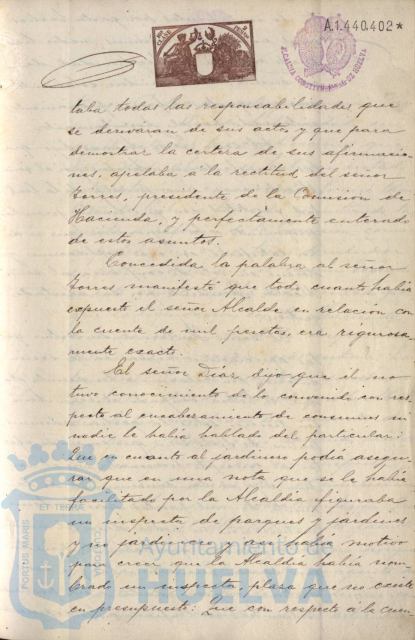 A.1.440.402*
ALCALDIA CONSTITUCIONAL DE HUELVA
taba todas las responsabilidades que
se derivaran de sus actos y que para
demostrar la certeza de sus afirmacio-
nes, apelaba á la rectitud del señor
Torres, presidente de la Comision de
Hacienda, y perfectamente enterado
de estos asuntos.
Concedida la palabra al señor
Torres manifestó que todo cuanto habia
expuesto el señor Alcalde en relación con
la cuenta de mil pesetas, era rigurosa-
mente exacto.
El señor Diaz dijo que él no
tuvo conocimiento de lo convenido con res-
pecto al encabezamiento de consumos ni
nadie le habia hablado del particular:
Que en cuanto al jardinero podia asegu-
rar que en una nota que se le habia
facilitado por la Alcaldia figuraba
un inspector de parques y jardines
y no jardinero y asi habia motivo
para creer que la Alcaldia habia nom-
brado un inspector, plaza que no existe
en presupuesto: Que con respecto á la cuen-
PORTUS MARIS
ET TERRAE
Ayuntamiento de
HUELVA